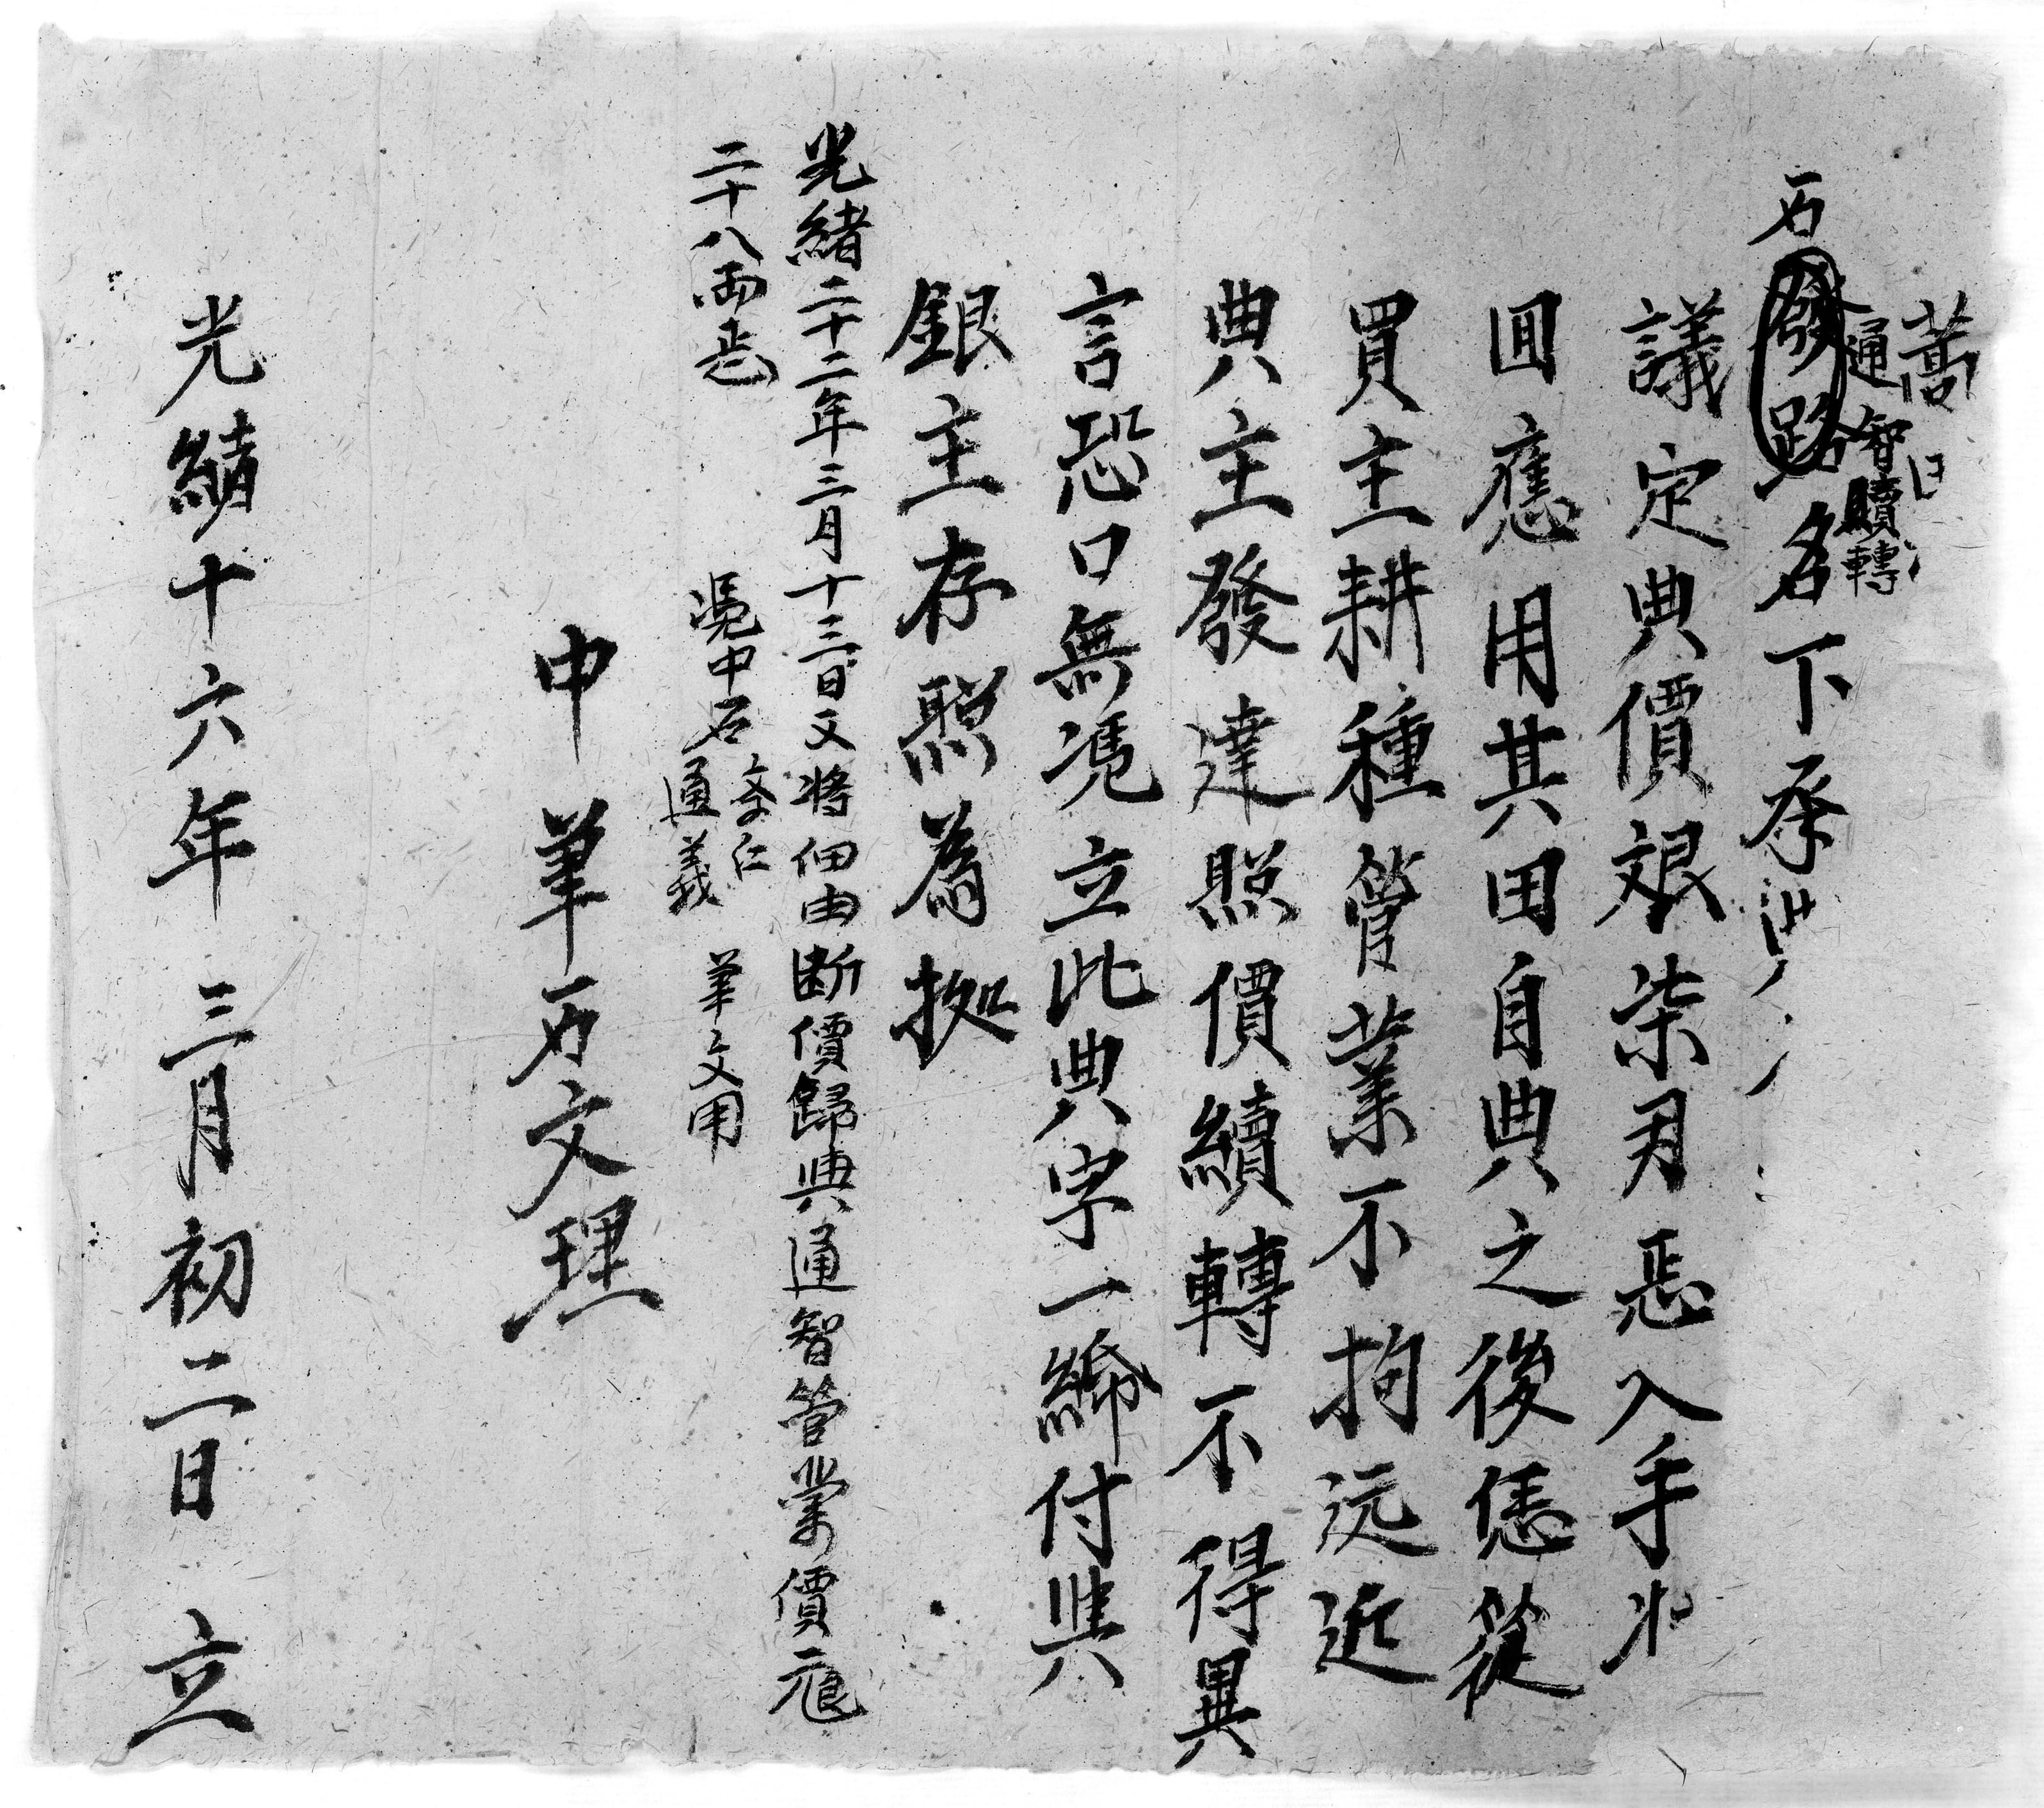 蒿
通智贖轉
石發路名下承
議定典價艰柒月悪入手
囬應用其田自典之後恁從
買主耕種管業不拘远近
典主發達照價續轉不得異
言恐口無凴立此典字一紙付與
銀主存照為拠
光緒二十二年三月十三日文將佃由断價歸典通智管業價元艮
二十八両㱏
凴中石 通義 筆文用
中筆石文理
光緒十六年三月初二日 立